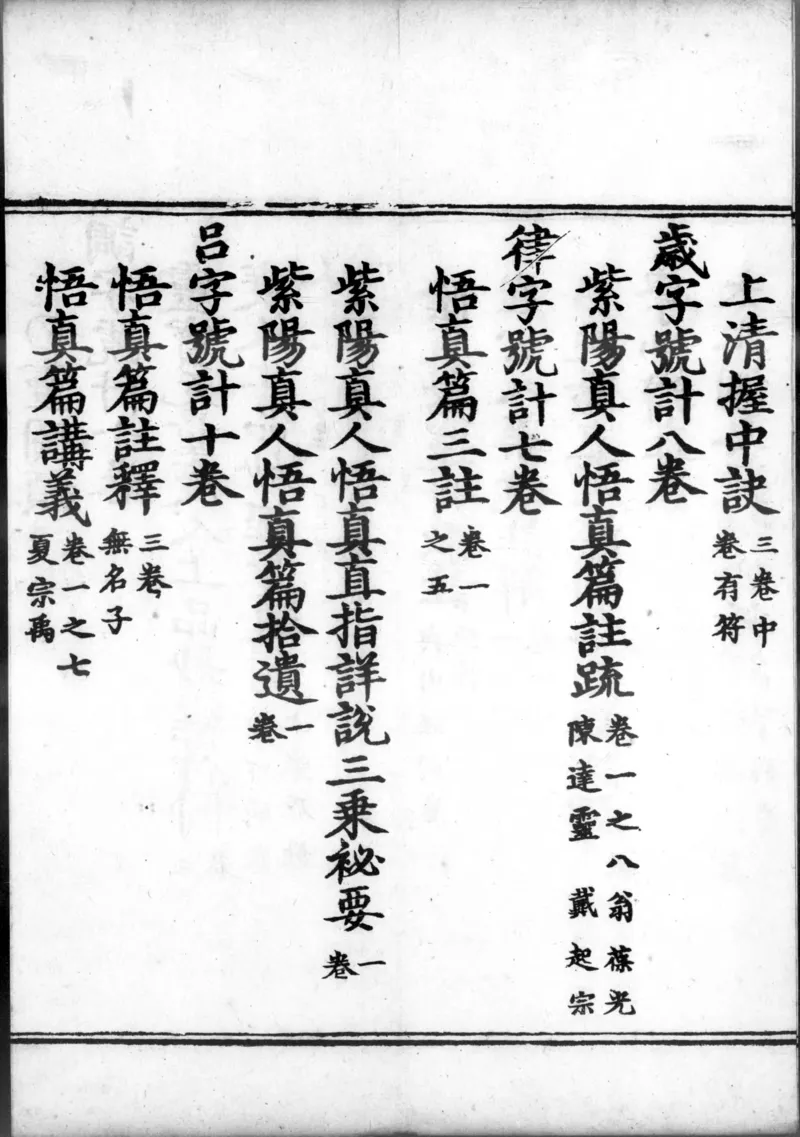 上清握中訣三卷中
卷有符
歲字號計八卷
紫陽真人悟真篇註疏卷一之八翁葆光
陳達靈 戴起宗
律字號計七卷
悟真篇三註卷一
之五
紫陽真人悟真直指詳說三乗祕要一
卷
紫陽真人悟真篇拾遺一
卷
呂字號計十卷
悟真篇註釋三卷
無名子
悟真篇講義卷一之七
夏宗禹